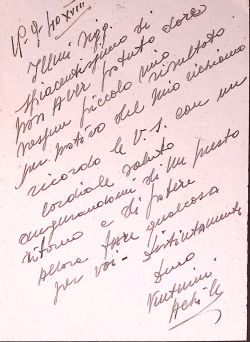 40 XVIII
Illmi Sigg.
spiacentissimo di
non aver potuto dare
nessun piccolo mio risultato
per motivo del mio richiamo
ricordo le V. S. con un
cordiale saluto
augurandomi di un presto
ritorno e di potere
allora fare qualcosa
per voi - Distintamente
Achille